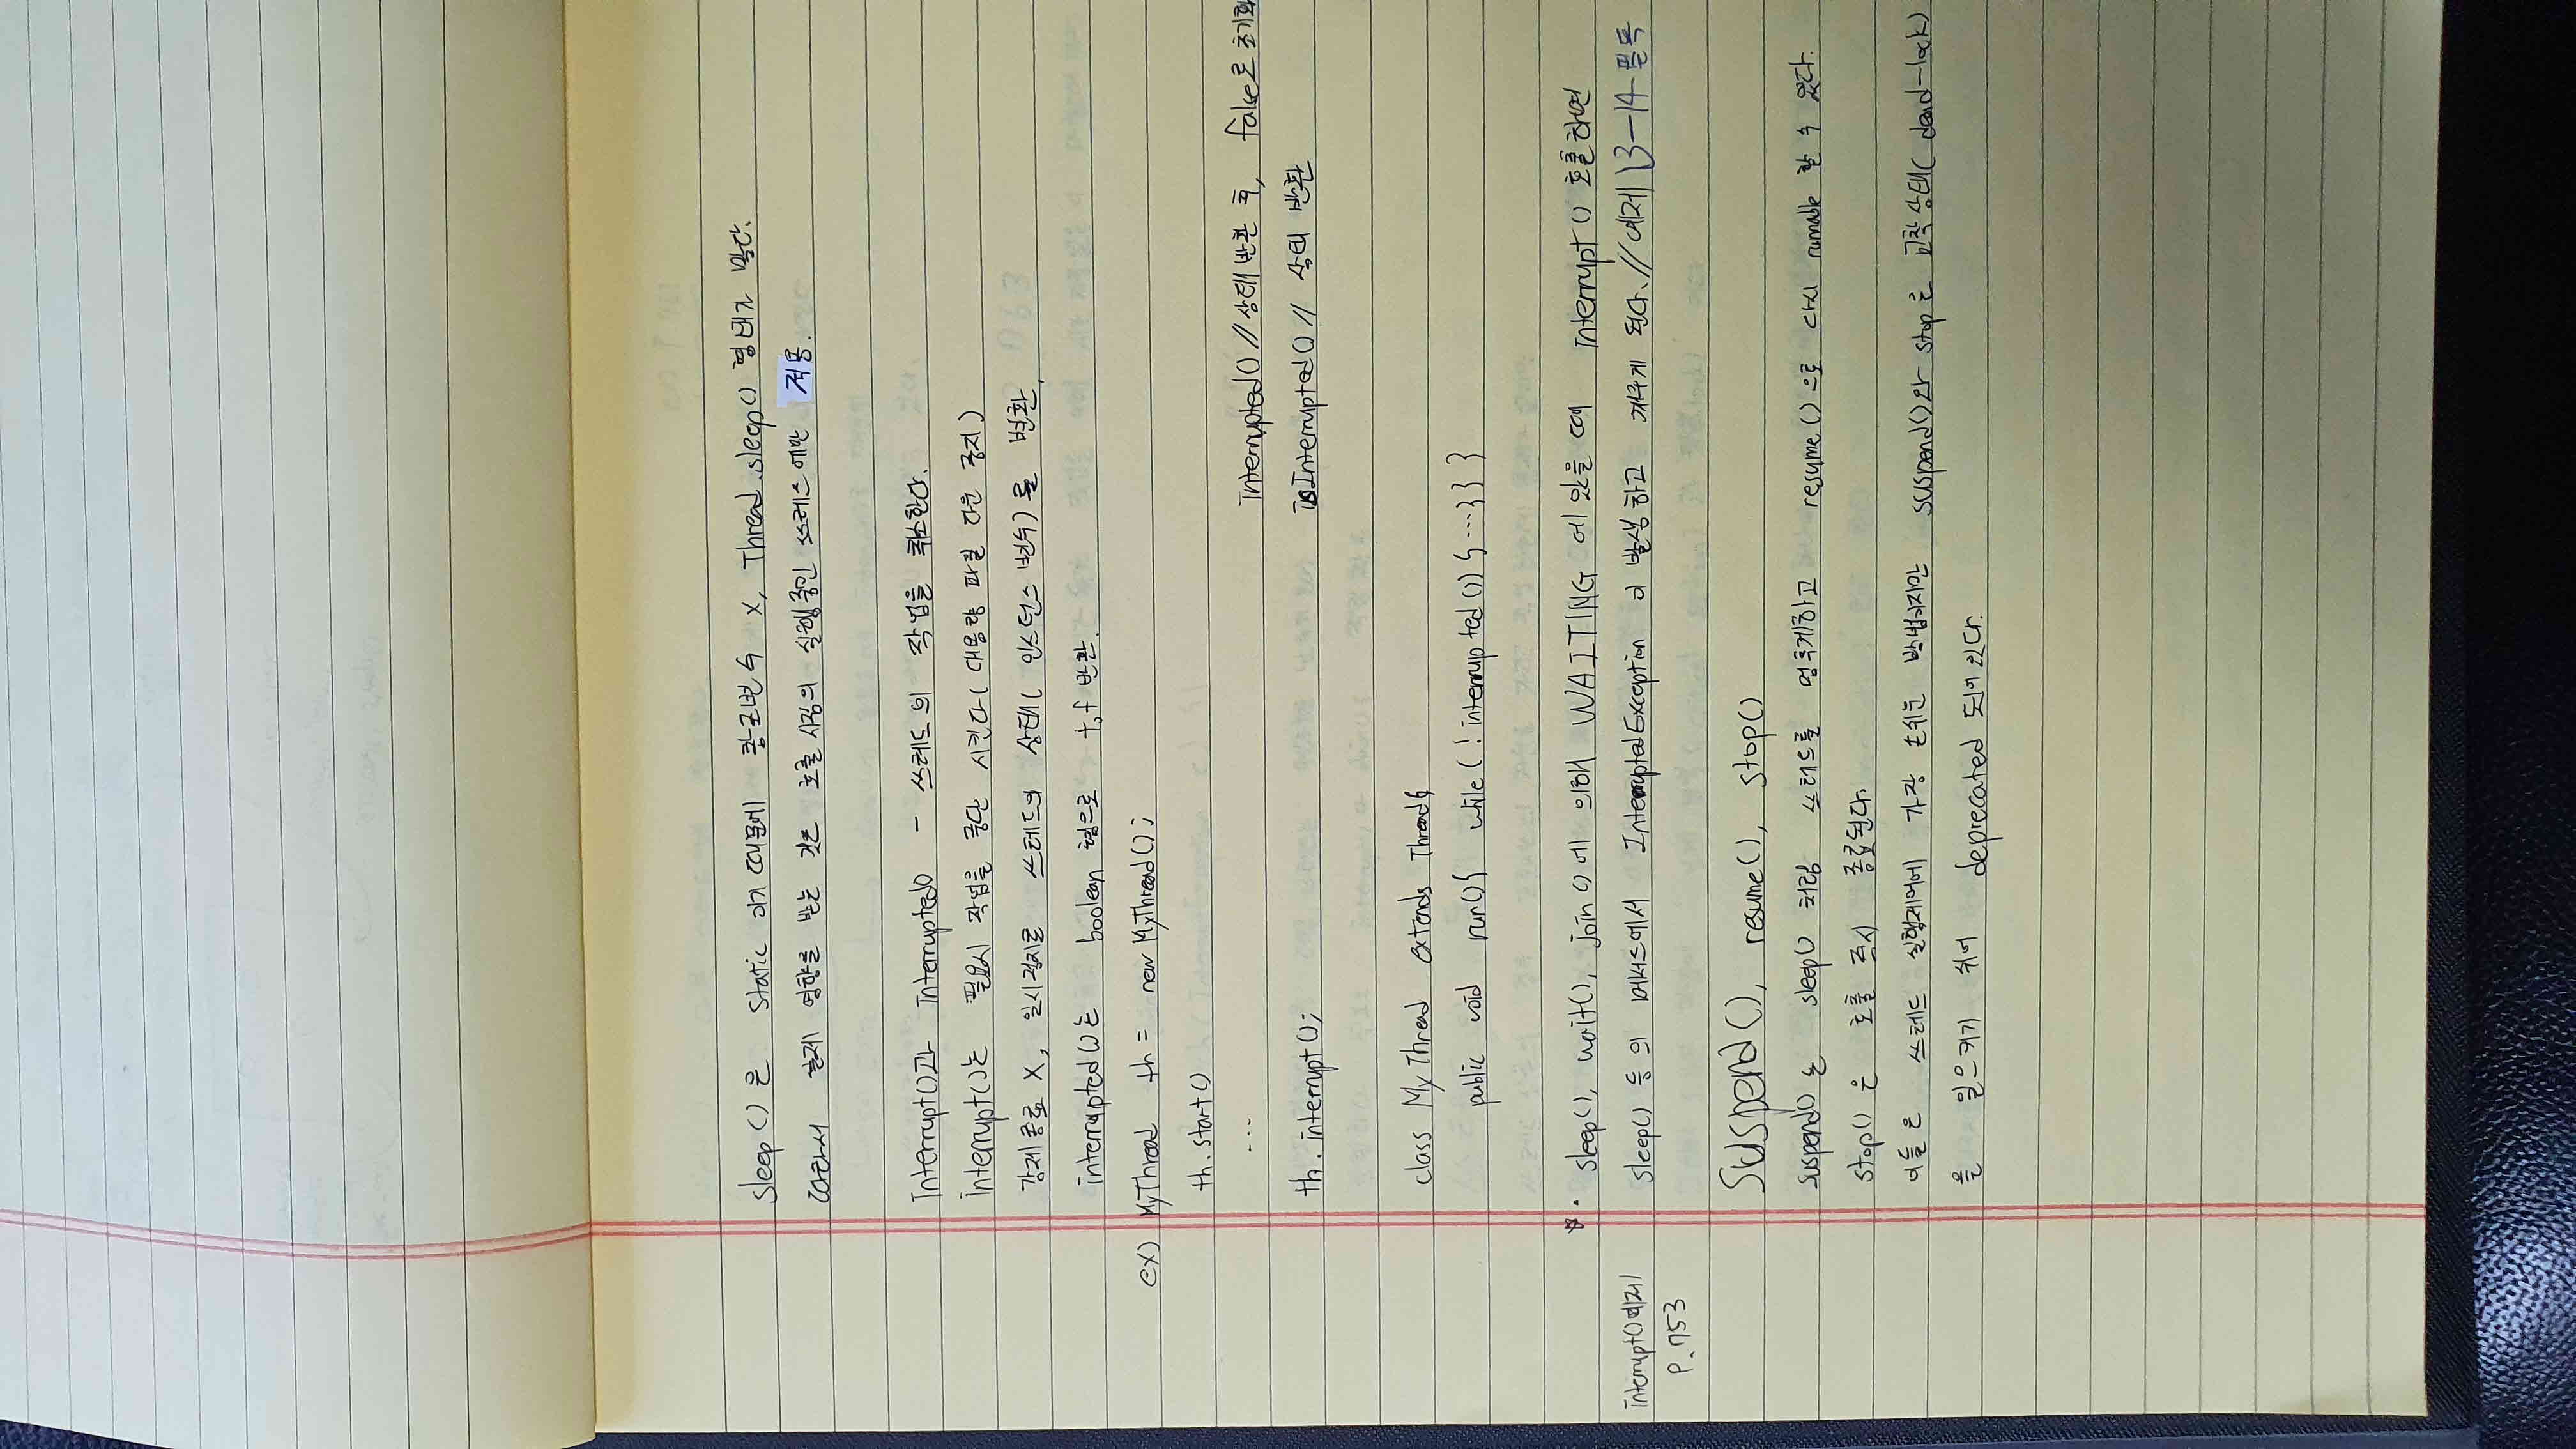 sleep()은 static 이기 때문에 참조변수 x, Thread.sleep() 형태가 맞다.
따라서 실제 영향을 받는 것은 호출시점의 실행중인 쓰레드에만 적용.
Interrupt()과 Interrupted() - 쓰레드의 작업을 취소한다.
interrupt()는 필요시 작업을 중단 시킨다(대용량 파일 다운 중지)
강제종료 X, 일시정지로 쓰레드의 상태(인스턴스 변수)를 변환,
interrupted()는 boolean 형으로 t,f 반환.
ex) MyThread th = new MyThread();
th.start()
...
interrupted() // 상태 반환 후, false로 초기화
th.interrupt();
isInterrupted() // 상태 반환
class MyThread extends Thread{
public void run(){ while(!interrupted()){ ...} } }
☆· sleep(), wait(), join()에 의해 WAITING 에 있을 때 interrupt() 호출하면
sleep() 등의 메서드에서 InterruptedException 이 발생하고 깨우게 된다. // 예제 13-14 필독
interrupt()예제
P.753
suspend(), resume(), stop()
suspend()는 sleep() 처럼 쓰레드를 멈추게하고 resume()으로 다시 runnable 할 수 있다.
stop()은 호출 즉시 종료된다.
이들은 쓰레드 실행제어에 가장 손쉬운 방법이지만 suspend()와 stop은 교착상태(dead-lock)
을 일으키기 쉬어 deprecated 되어있다.